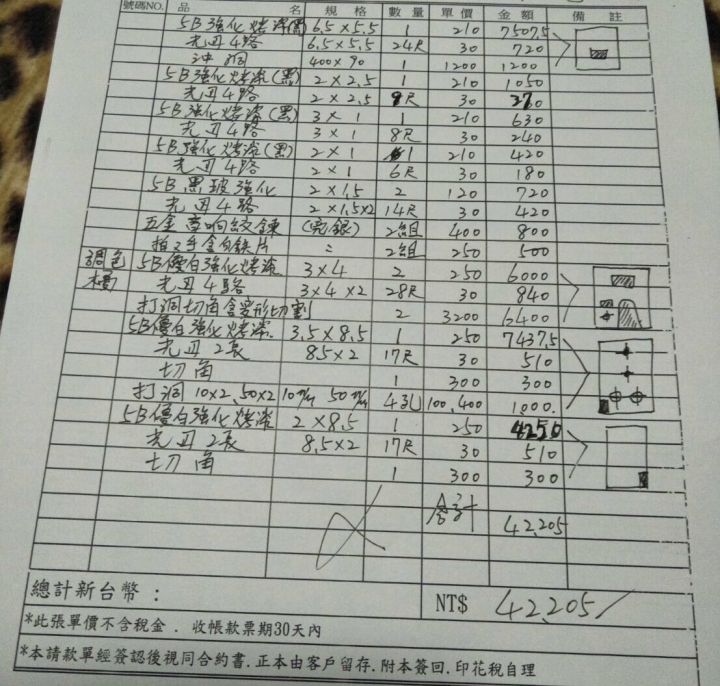 號碼NO. 品 名 規 格 數 量 單 價 金 額 備 註
5B強化烤漆 6.5×5.5 1 210 7507.5
光邊4路 6.5×5.5 24尺 30 720
沖洞 400×90 1 1200 1200
5B強化烤漆(黑) 2×2.5 1 210 1050
光邊4路 2×2.5 9尺 30 270
5B強化烤漆(黑) 3×1 1 210 630
光邊4路 3×1 8尺 30 240
5B強化烤漆(黑) 2×1 1 210 420
光邊4路 2×1 6尺 30 180
5B黑玻強化 2×1.5 2 120 720
光邊4路 2×1.5×2 14尺 30 420
五金音响紋鍊 (亮銀) 2組 400 800
拍2手含白鉄片 〃 2組 250 500
調色 5B優白強化烤漆 3×4 2 250 6000
光邊4路 3×4×2 28尺 30 840
打洞切角含变形切割 2 3200 6400
5B優白強化烤漆 3.5×8.5 1 250 7437.5
光邊2長 8.5×2 17尺 30 510
切角 1 300 300
打洞 10×2,50×2 10m/m 50m/m 4孔 100,400 1000.
5B優白強化烤漆 2×8.5 1 250 4250
光邊2長 8.5×2 17尺 30 510
切角 1 300 300
合計 42,205
總計新台幣： NT$ 42,205/
*此張單價不含稅金．收帳款票期30天內
*本請款單經簽認後視同合約書.正本由客戶留存.附本簽回.印花稅自理